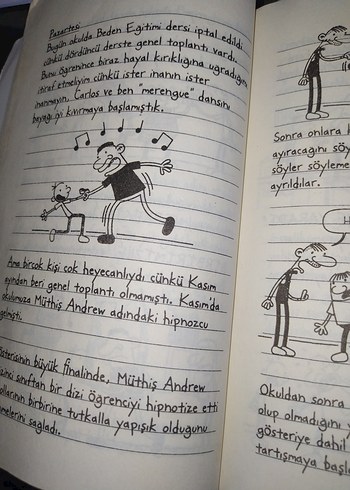 Pazartesi
Bugün okulda Beden Eğitimi dersi iptal edildi
çünkü dördüncü derste genel toplantı vardı.
Bunu öğrenince biraz hayal kırıklığına uğradığımı
itiraf etmeliyim çünkü ister inanın ister
inanmayın, Carlos ve ben "merengue" dansını
bayağı iyi kıvırmaya başlamıştık.
Ama birçok kişi çok heyecanlıydı çünkü Kasım
ayından beri genel toplantı olmamıştı. Kasım'da
okulumuza Müthiş Andrew adındaki hipnozcu
gelmişti.
österisinin büyük finalinde, Müthiş Andrew
zinci sınıftan bir dizi öğrenciyi hipnotize etti
ollarının birbirine tutkalla yapışık olduğunu
melerini sağladı.
Sonra onlara
ayıracağını söy
söyler söyleme
ayrıldılar.
H
Okuldan sonra
olup olmadığını
gösteriye dahil
tartışmaya başla